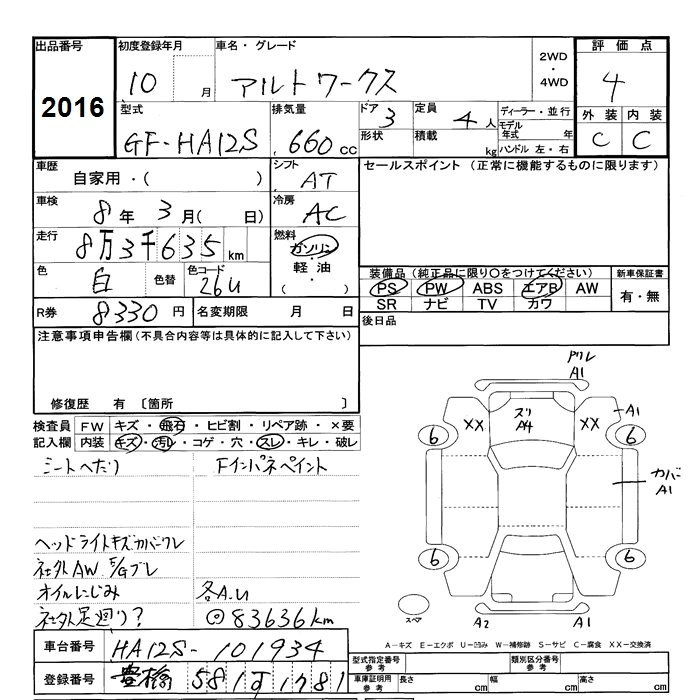 出品番号
2016
初度登録年月
10 月
車名・グレード
アルトワークス
2WD
・
4WD
評価点
4
型式
GF-HA12S
排気量
660 cc
ドア 3
形状
定員 4 人
積載 kg
ディーラー・並行
モデル年式 年
ハンドル 左・右
外装 内装
C C
車歴
自家用・( )
シフト
AT
セールスポイント (正常に機能するものに限ります)
車検
8年 3月( 日)
冷房
AC
走行
8万3千635 km
燃料
ガソリン
・
軽油
・
( )
色
白
色替
色コード
26U
装備品 (純正品に限り○をつけてください)
PS PW ABS エアB AW
SR ナビ TV カワ
新車保証書
有・無
R券 8330 円
名変期限 月 日
後日品
注意事項申告欄 (不具合内容等は具体的に記入して下さい)
修復歴 有 〔箇所 〕
検査員記入欄
FW キズ・飛石・ヒビ割・リペア跡・×要
内装 キズ・汚レ・コゲ・穴・スレ・キレ・破レ
シートへたり
Fインパネペイント
ヘッドライトキズカバーワレ
社外AW E/Gブレ
オイルにじみ
各A.U
社外足廻り?
◎83636km
車台番号
HA12S-101934
登録番号
豊橋 581
1781
ワレ
A1
ズリ
A4
XX
XX
A1
6
6
カバー
A1
6
6
スペア
A2
A1
A-キズ E-エクボ U-凹み W-補修跡 S-サビ C-腐食 XX-交換済
型式指定番号
参考
類別区分番号
参考
車庫証明用
参考
長さ cm
幅 cm
高さ cm